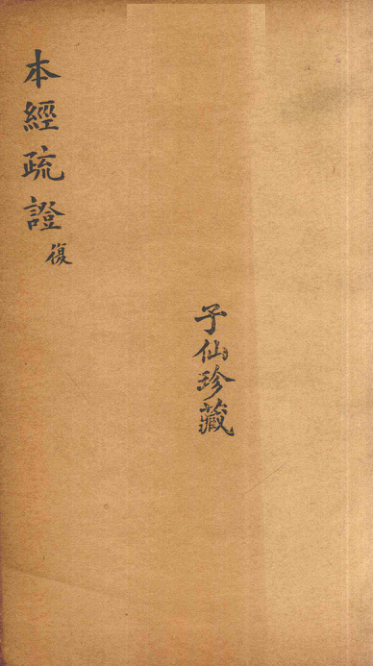 本經疏證
復
子仙珍藏